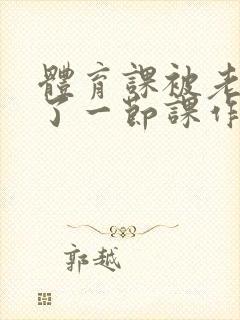 體育課被老
了一節課作
郭越